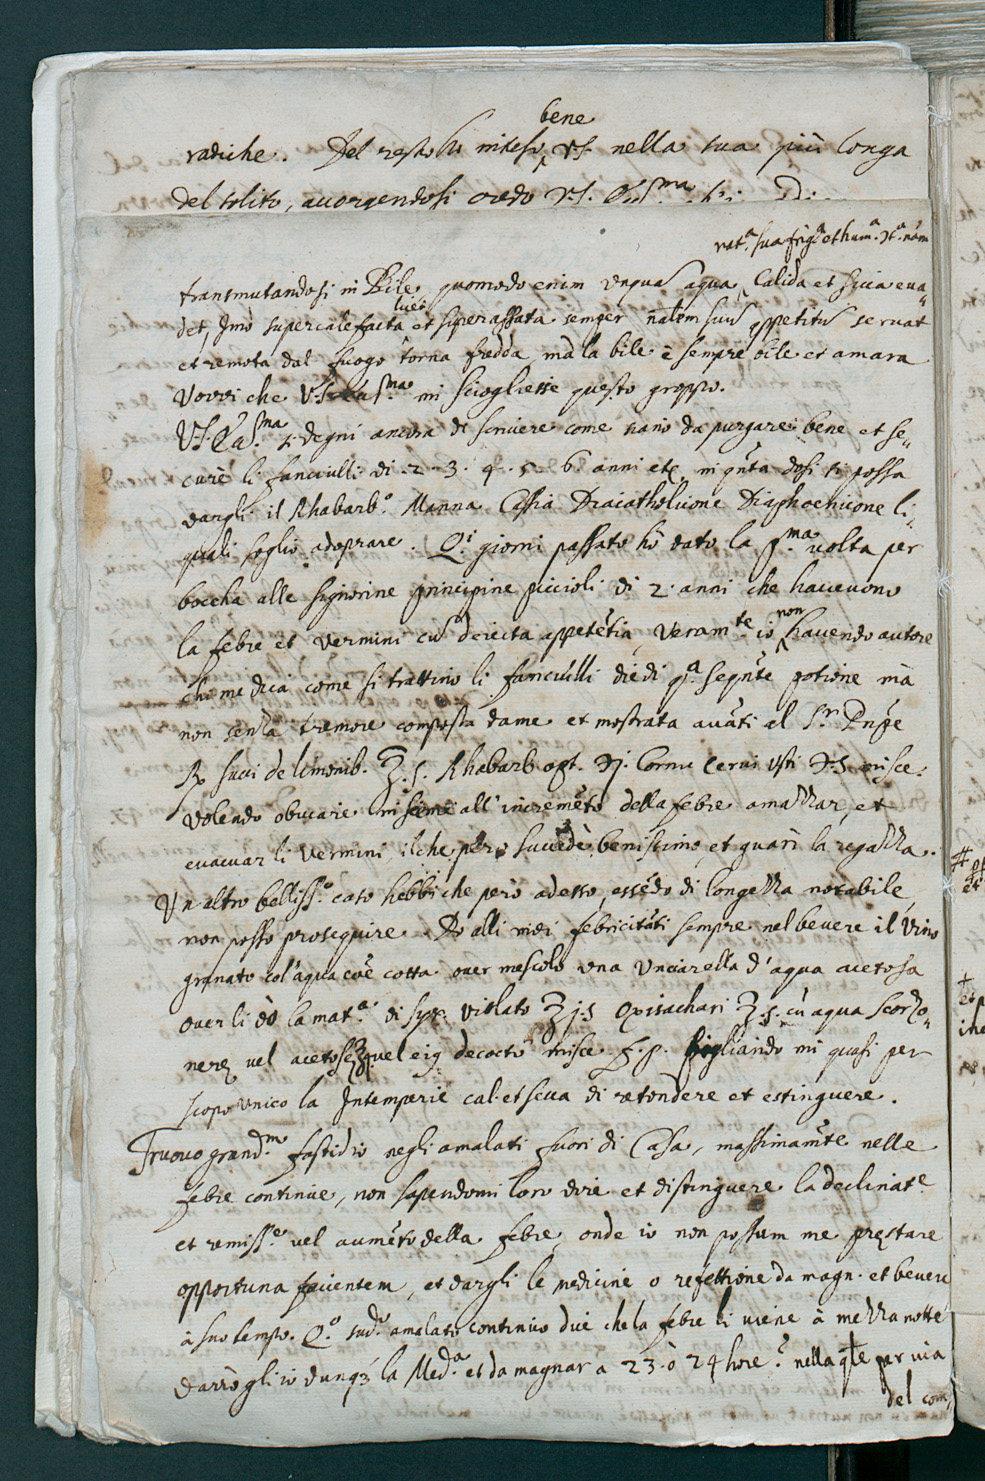 bene
radiche. Del resto hò inteso V.S. nella sua più longa
del solito, auorgendosi credo V.S.
nat.ª sua frig.ª et hum.ª
transmutandosi in Bile, quomodo enim unqua aqua Calida et sicca eua-
det, Imò supercalefacta et superassata semper nãlem suũ appetitũ seruat
et remota dal fuogo torna fredda, mà la bile è sempre bile et amara
Vorri che V.S. mi sciogliesse questo groppo.
V.S. Ecc.ma si degni ancora di scriuere come hano da purgare bene et se-
curè li fanciulli di 2. 3. 4. 5. 6. anni etc. in qũta dosi si possa
dargli il Rhabarb.º Manna Cassia Diacatholicone Diaphoenicone li-
quali soglio adoprare. Q.i giorni passato hò dato la p.ma uolta per
boccha alle signorine principine piccioli di 2. anni che haueuono
la febre et vermini cũ deiecta appetẽtia, Veram.te io non hauendo autore
chi me dica come si trattino li fanciulli diedi q.ª seqũte potione mà
non senza tremore composta da me et mostrata auãti al S.r Pñpe
℞ succi de limonib. ℥.s. Rhabarb. opt. ℈j. Cornu Cerui usti ℈.s. misce.
Volendo obuiare insieme all' incremẽto della febre amazzar, et
euacuar li vermini, il che però succede benissimo, et guarì la regazza.
Un altro belliss.º caso hebbi che però adesso, essẽdo di longezza notabile,
non posso proseguire. Do alli miei febricitãti sempre nel beuere il vino
granato col' aqua cotta ouer mescolo una Unciarella d' aqua acetosa
ouer li dò la mat.ª di syr. violato ℥j.s Oxisachari ℥.s. cũ aqua Scorzo-
nerę vel acetosę vel eig decocto misce. f. p. Pigliando mi quasi per
scopo unico la Intemperie cal. et sicca di retondere et estinguere.
Truouo grand.mo fastidio negli amalati fuori di Casa, massimamẽte nelle
febre continue, non sapendomi loro dire et distinguere la declinat.e
et remiss.e vel aumẽto della febre, onde io non possum me prestare
opportuna facientem, et dargli le medicine o refettione da magn. et beuere
à suo tempo. Q.º sud.º amalato continuo dice che la febre li uiene à mezza notte
darrògli io dunq3 la Med.ª et da magnar a 23. ò 24 hore? nella q̃le per uia
del com-